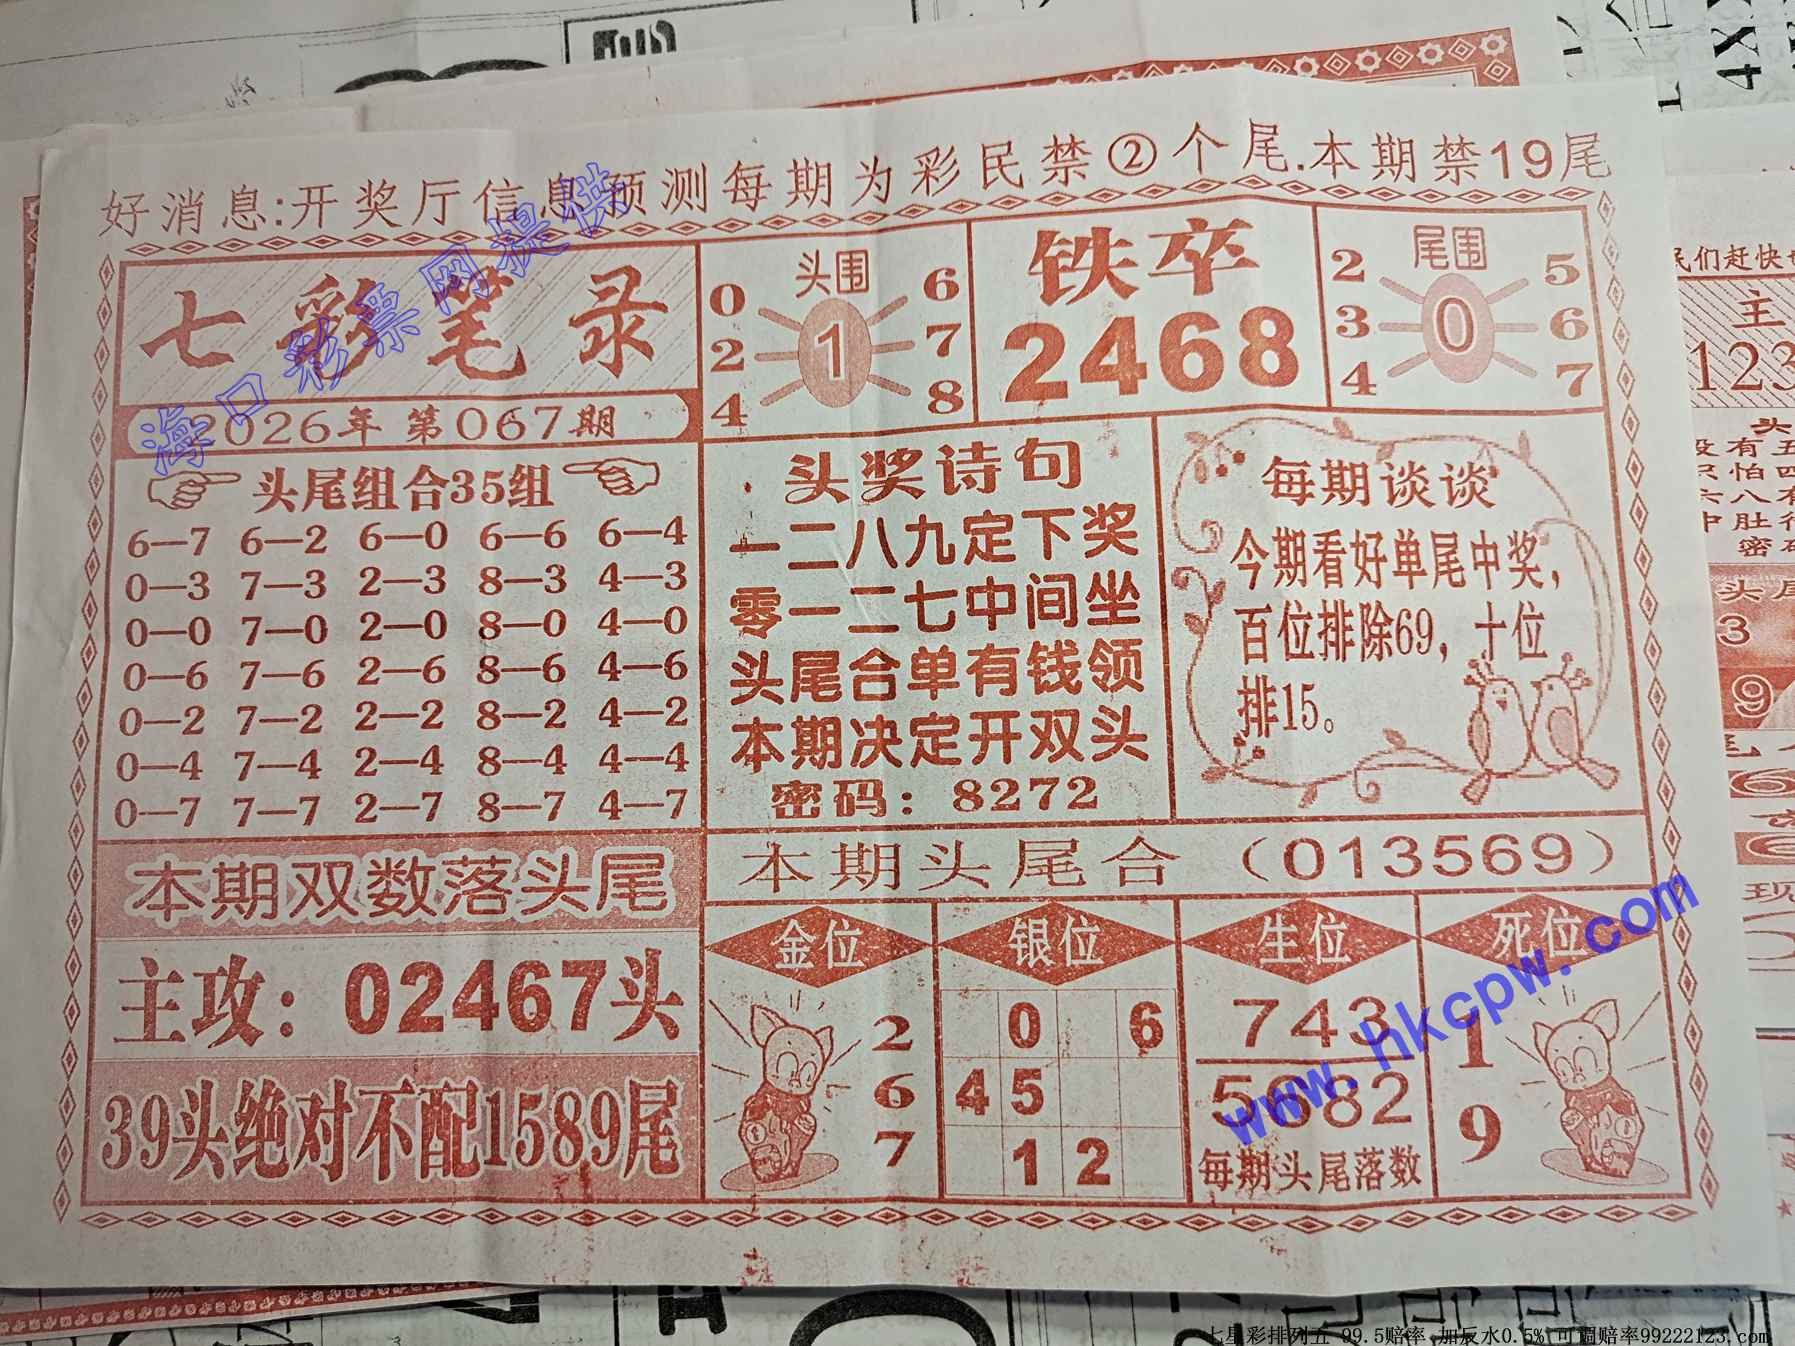 好消息:开奖厅信息预测每期为彩民禁②个尾.本期禁19尾
七彩笔录
2026年 第067期
头围
0 1 6
2 7
4 8
铁卒
2468
尾围
2 0 5
3 6
4 7
头尾组合35组
6—7 6—2 6—0 6—6 6—4
0—3 7—3 2—3 8—3 4—3
0—0 7—0 2—0 8—0 4—0
0—6 7—6 2—6 8—6 4—6
0—2 7—2 2—2 8—2 4—2
0—4 7—4 2—4 8—4 4—4
0—7 7—7 2—7 8—7 4—7
头奖诗句
一二八九定下奖
零一二七中间坐
头尾合单有钱领
本期决定开双头
密码：8272
每期谈谈
今期看好单尾中奖，
百位排除69，十位
排15。
本期双数落头尾
主攻：02467头
39头绝对不配1589尾
本期头尾合（013569）
金位
2
6
7
银位
0 6
4 5
1 2
生位
743
5682
每期头尾落数
死位
1
9
海口彩票网提供
www.hkcpw.com
民们赶快
主
123
头
没有五
只怕四
六八有
中肚
密码
头尾
3
9
6
6
现
七星彩排列五 99.5赔率 加反水0.5% 可调赔率99222123.com